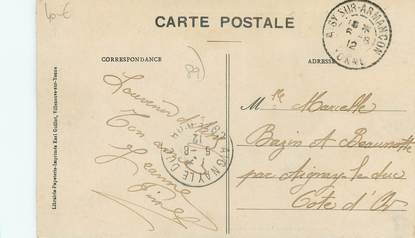 40-€
CARTE POSTALE
CORRESPONDANCE
ADRESSE
89
SY-SUR-ARMANÇON
12
YONNE
Souvenir d'
Ton amie
Jeanne
AIGNAY-LE-DUC
Mlle Marcelle
Bazin et Beaunotte
par Aignay-le-duc
Côte d'Or
Librairie Papeterie-Imprimerie Karl Guillot, Villeneuve-sur-Yonne